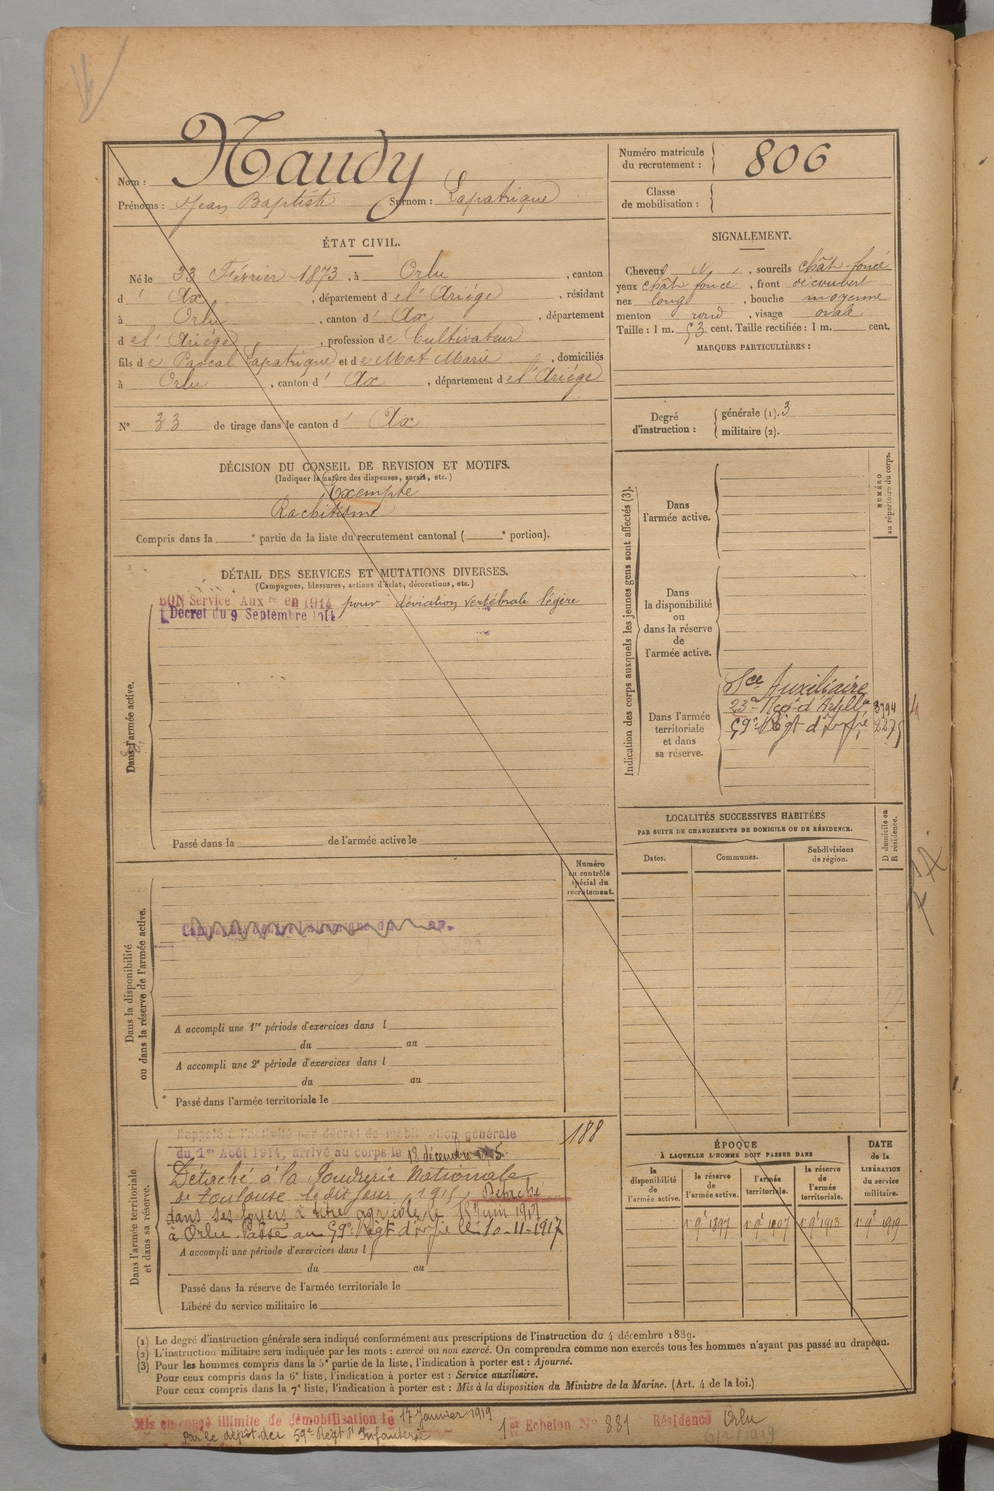 Nom : Naudy
Prénoms : Jean Baptiste Surnom : Lapatrique
Numéro matricule du recrutement : 806
Classe de mobilisation :
ÉTAT CIVIL.
Né le 23 Février 1873, à Orlu, canton
d' Ax, département de l'Ariège, résidant
à Orlu, canton d' Ax, département
de l'Ariège, profession de Cultivateur
fils de Pascal Lapatrique et de Mot Marie, domiciliés
à Orlu, canton d' Ax, département de l'Ariège
N° 33 de tirage dans le canton d' Ax
SIGNALEMENT.
Cheveux , sourcils chât-foncé
yeux chât foncé, front découvert
nez long, bouche moyenne
menton rond, visage ovale
Taille : 1 m. 53 cent. Taille rectifiée : 1 m. cent.
MARQUES PARTICULIÈRES :
Degré d'instruction :
générale (1). 3
militaire (2).
DÉCISION DU CONSEIL DE REVISION ET MOTIFS.
(Indiquer la nature des dispenses, sursis, etc.)
Exempté
Rachitisme
Compris dans la e partie de la liste du recrutement cantonal ( e portion).
DÉTAIL DES SERVICES ET MUTATIONS DIVERSES.
(Campagnes, blessures, actions d'éclat, décorations, etc.)
BON Service Aux en 1914 pour déviation vertébrale légère
Décret du 9 Septembre 1914
Dans l'armée active.
Passé dans la de l'armée active le
Numéro au contrôle spécial du recrutement.
Dans la disponibilité ou dans la réserve de l'armée active.
A accompli une 1re période d'exercices dans l
du au
A accompli une 2e période d'exercices dans l
du au
Passé dans l'armée territoriale le
Dans l'armée territoriale et dans sa réserve.
188
Rappelé à l'activité par décret de mobilisation générale
du 1er Août 1914, arrivé au corps le 18 décembre 1915
Détaché à la Poudrerie Nationale
de Toulouse le dit jour 1915, Détaché
dans ses foyers à titre agricole le 15 Juin 1917
à Orlu. Passé au 59e Régt d'Infie le 10-11-1917
A accompli une période d'exercices dans l
du au
Passé dans la réserve de l'armée territoriale le
Libéré du service militaire le
Indication des corps auxquels les jeunes gens sont affectés (3).
NUMÉRO au répertoire du corps.
Dans l'armée active.
Dans la disponibilité ou dans la réserve de l'armée active.
Dans l'armée territoriale et dans sa réserve.
Sce Auxiliaire
23e Reg. d'Artllie 3794
59e Régt d'Infie
LOCALITÉS SUCCESSIVES HABITÉES
PAR SUITE DE CHANGEMENTS DE DOMICILE OU DE RÉSIDENCE.
Dates. Communes. Subdivisions de région. D domicile ou R résidence.
ÉPOQUE
À LAQUELLE L'HOMME DOIT PASSER DANS
DATE de la LIBÉRATION du service militaire.
la disponibilité de l'armée active. la réserve de l'armée active. l'armée territoriale. la réserve de l'armée territoriale.
1er 9bre 1897 1er 9bre 1907 1er 9bre 1913 1er 9bre 1919
(1) Le degré d'instruction générale sera indiqué conformément aux prescriptions de l'instruction du 4 décembre 1889.
(2) L'instruction militaire sera indiquée par les mots : exercé ou non exercé. On comprendra comme non exercés tous les hommes n'ayant pas passé au drapeau.
(3) Pour les hommes compris dans la 5e partie de la liste, l'indication à porter est : Ajourné.
Pour ceux compris dans la 6e liste, l'indication à porter est : Service auxiliaire.
Pour ceux compris dans la 7e liste, l'indication à porter est : Mis à la disposition du Ministre de la Marine. (Art. 4 de la loi.)
Mis en congé illimité de démobilisation le 17 Janvier 1919 1er Echelon N° 881 Résidence Orlu
par le dépôt du 59e Régt d'Infanterie